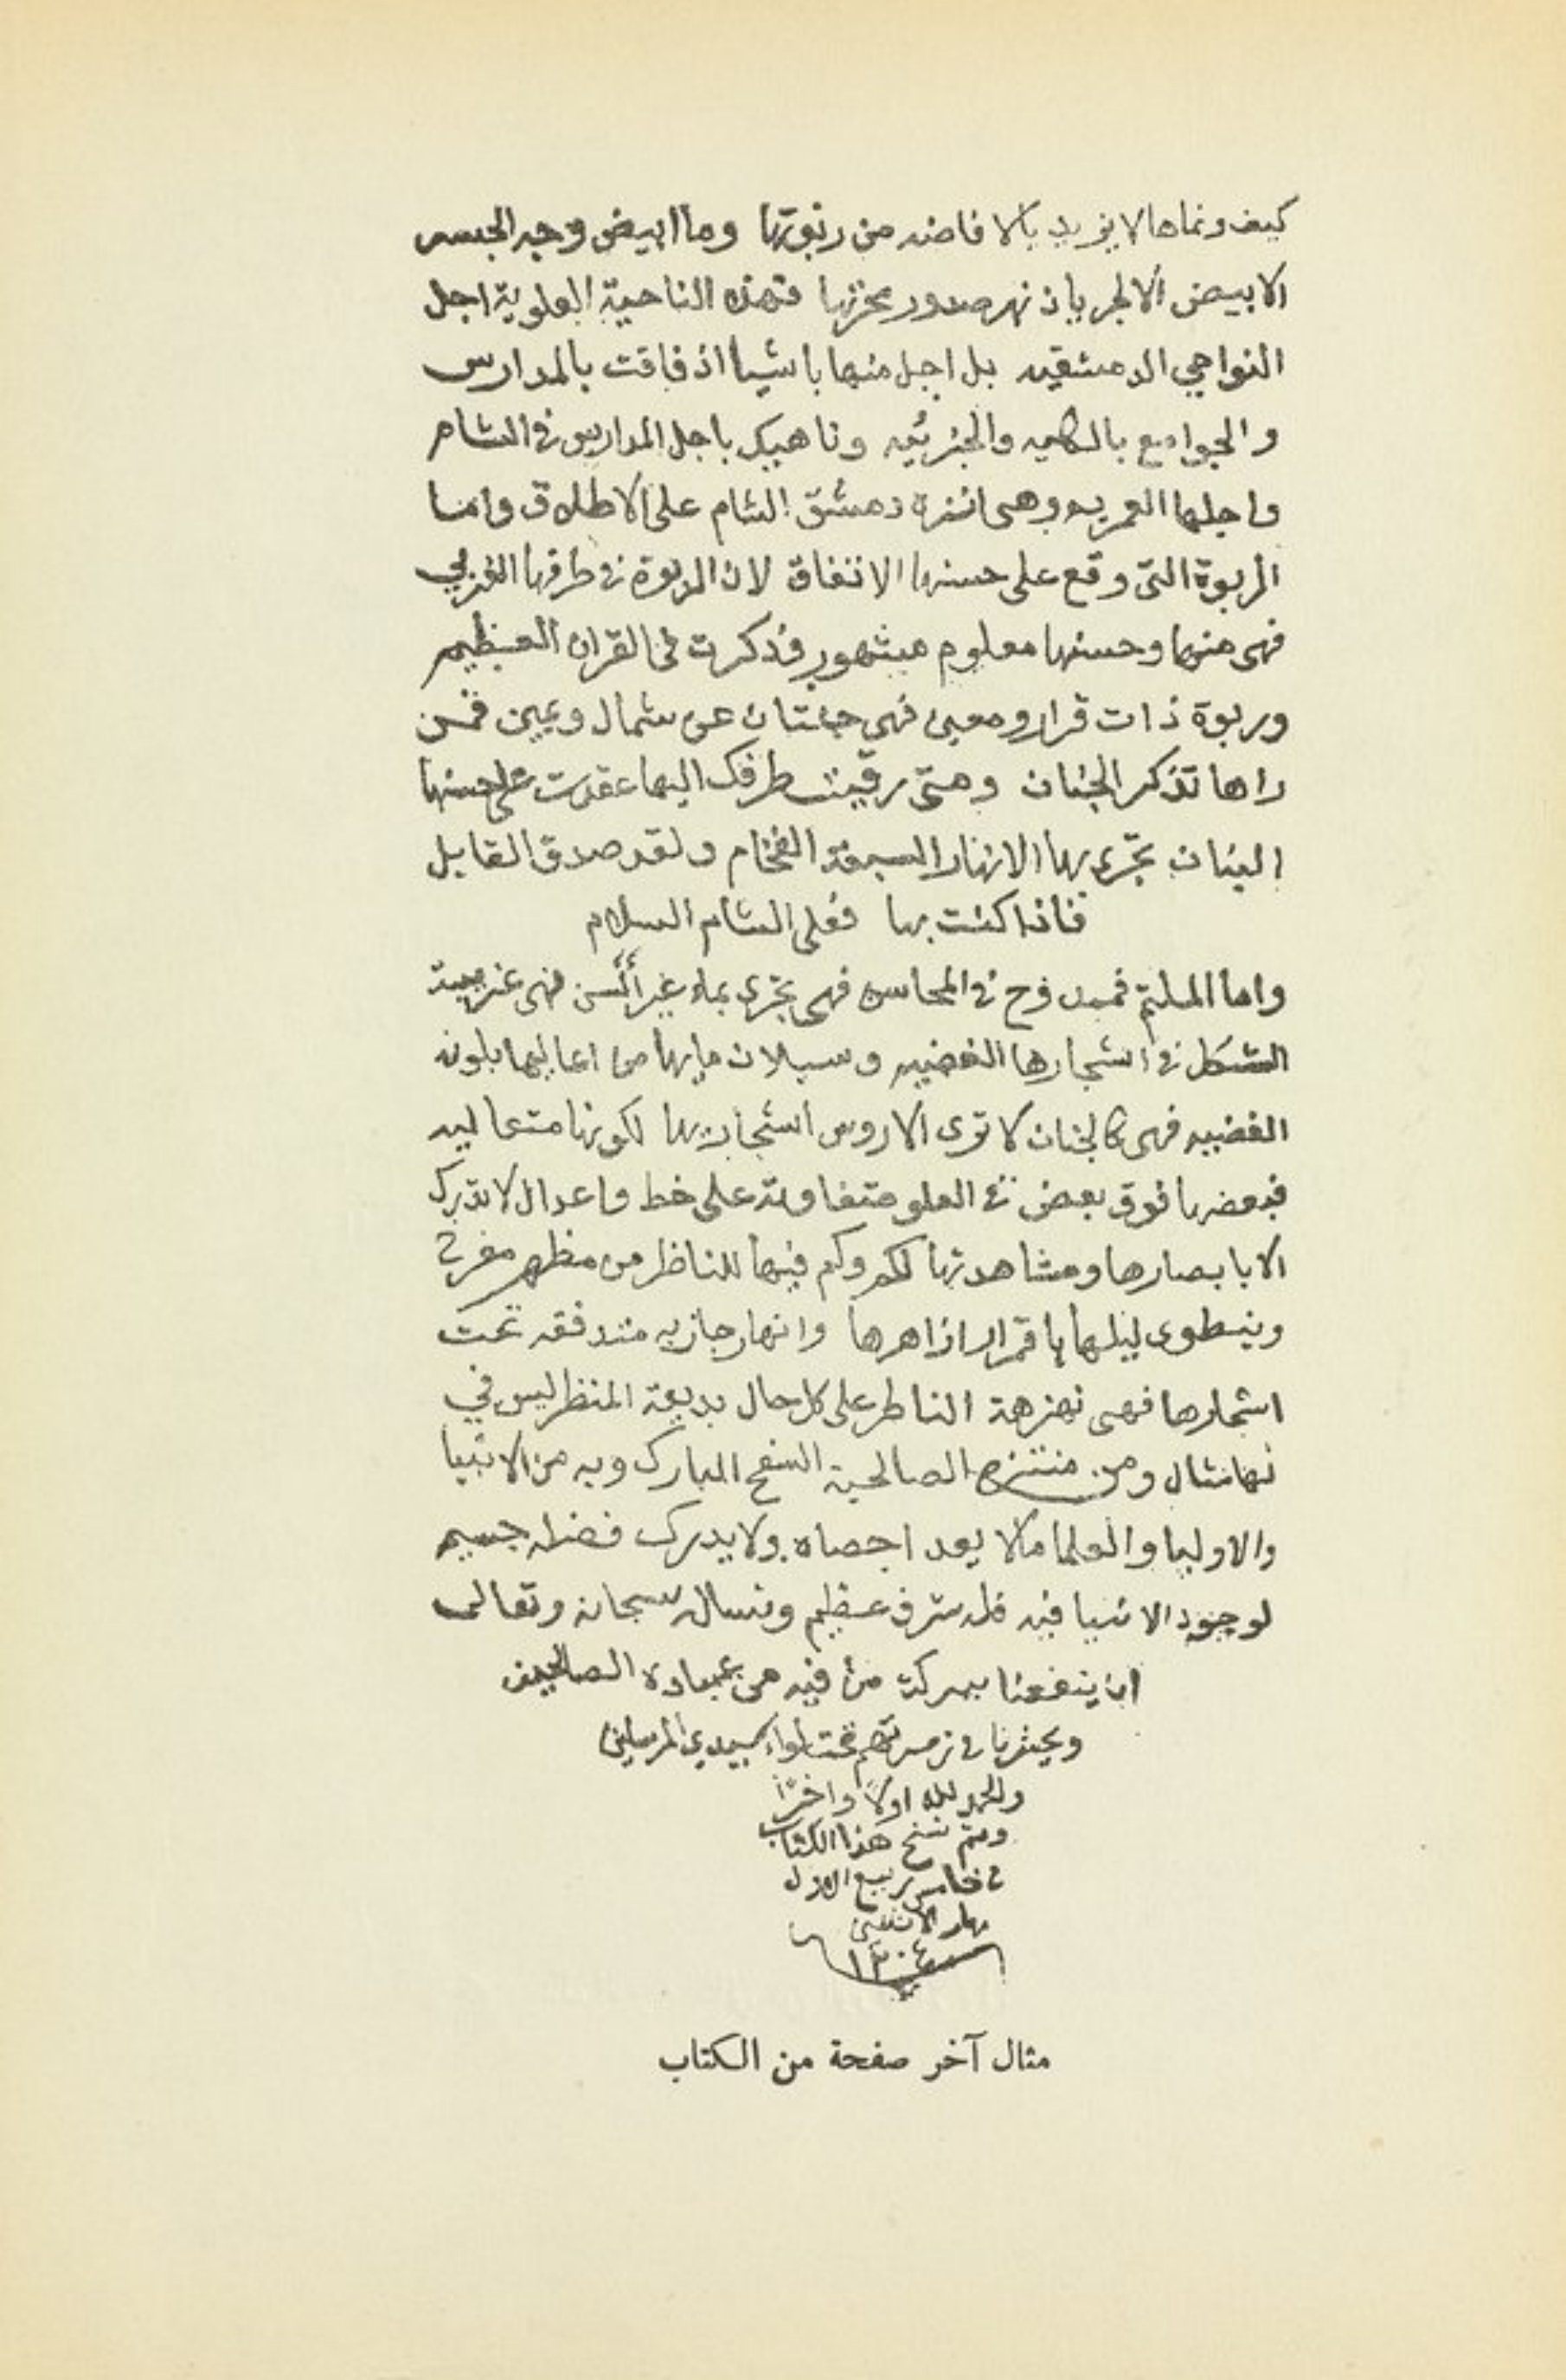 كيف ونماها لا يزيد بالافاضه من ربوتها وما ابيض وجه الجسر
الابيض الا لجريان نهر صدور بحزتها فهذه الناحية العلوية اجل
النواحي الدمشقيه بل اجل منها باشيا اذ فاقت بالمدارس
والجوامع بالكليه والجزئيه وناهيك باجل المدارس في الشام
واجلها العمريه وهى انزه دمشق الشام على الاطلاق واما
الربوة التى وقع على حسنها الاتفاق لان الربوة في طرفها الغربي
فهى منها وحسنها معلوم مشهور وذكرت في القران العظيم
وربوة ذات قرار ومعين فهى جنتان عن شمال ويمين فمن
راها تذكر الجنان ومتى رقيت طرفك اليها عقدت على حسنها
البنان تجرى بها الانهار السبعة الفخام ولقد صدق القايل
فاذا كنت بها فعلى الشام السلام
واما الملثم فممدوح في المحاسن فهى تجرى بماء غير آسن فهى غريبة
الشكل في اشجارها الغضيه وسيلان مايها من اعاليها بلونه
الفضيه فهى كالجنان لا ترى الا روس اشجار بها لكونها متعاليه
فبعضها فوق بعض في العلو متفاوتة على خط واعدال لا تدرك
الا بابصارها ومشاهدتها لكم وكم فيها للناظر من مظهر مفرح
وينطوى ليلها باقمار ازاهرها وانهار جاريه متدفقه تحت
اشجارها فهى نهزهة الناظر على كل حال بديعة المنظر ليس في
لها مثال ومن منتزه الصالحية السفح المبارك وبه من الانبيا
والاوليا والعلما ما لا يعد احصاه ولا يدرك فضله جسيم
لوجود الانبيا فيه فله شرف عظيم ونساله سبحانه وتعالى
ان ينفعنا ببركة من فيه من عباده الصالحين
ويحشرنا في زمرتهم تحت لواء سيدي المرسلين
والحمد لله اولاً واخرًا
وتم نسخ هذا الكتاب
في خامس ربيع الاول
نهار الاثنين
سنة ١٣٠٤
مثال آخر صفحة من الكتاب